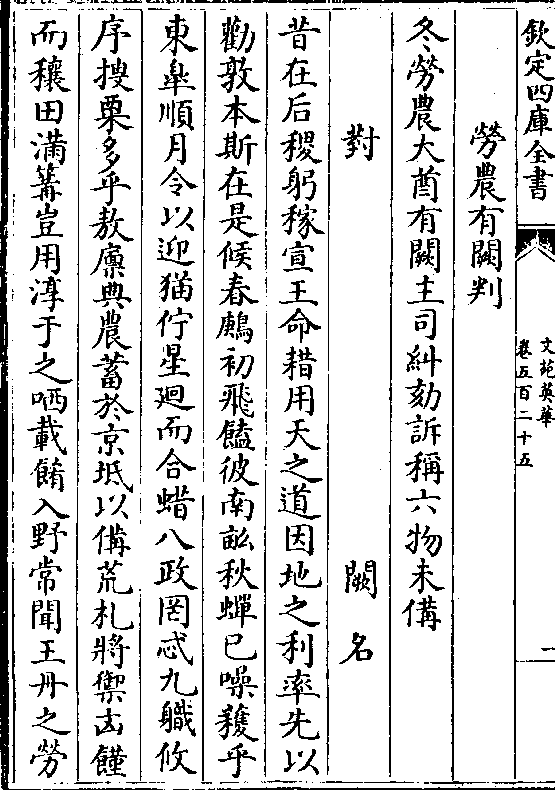 欽定四庫全書
文苑英華
卷五百二十五
一
勞農有闕判
冬勞農大酋有闕主司糾劾訴稱六物未備
對 闕名
昔在后稷躬稼宣王命耤用天之道因地之利率先以
勸敦本斯在是候春鳸初飛饁彼南畝秋蟬已噪穫乎
東臯順月令以迎猫佇星迴而合蜡八政罔忒九職攸
序搜粟多乎敖廪典農蓄於京坻以備荒札將禦凶饉
而穰田滿篝豈用淳于之哂載餚入野常聞王丹之勞